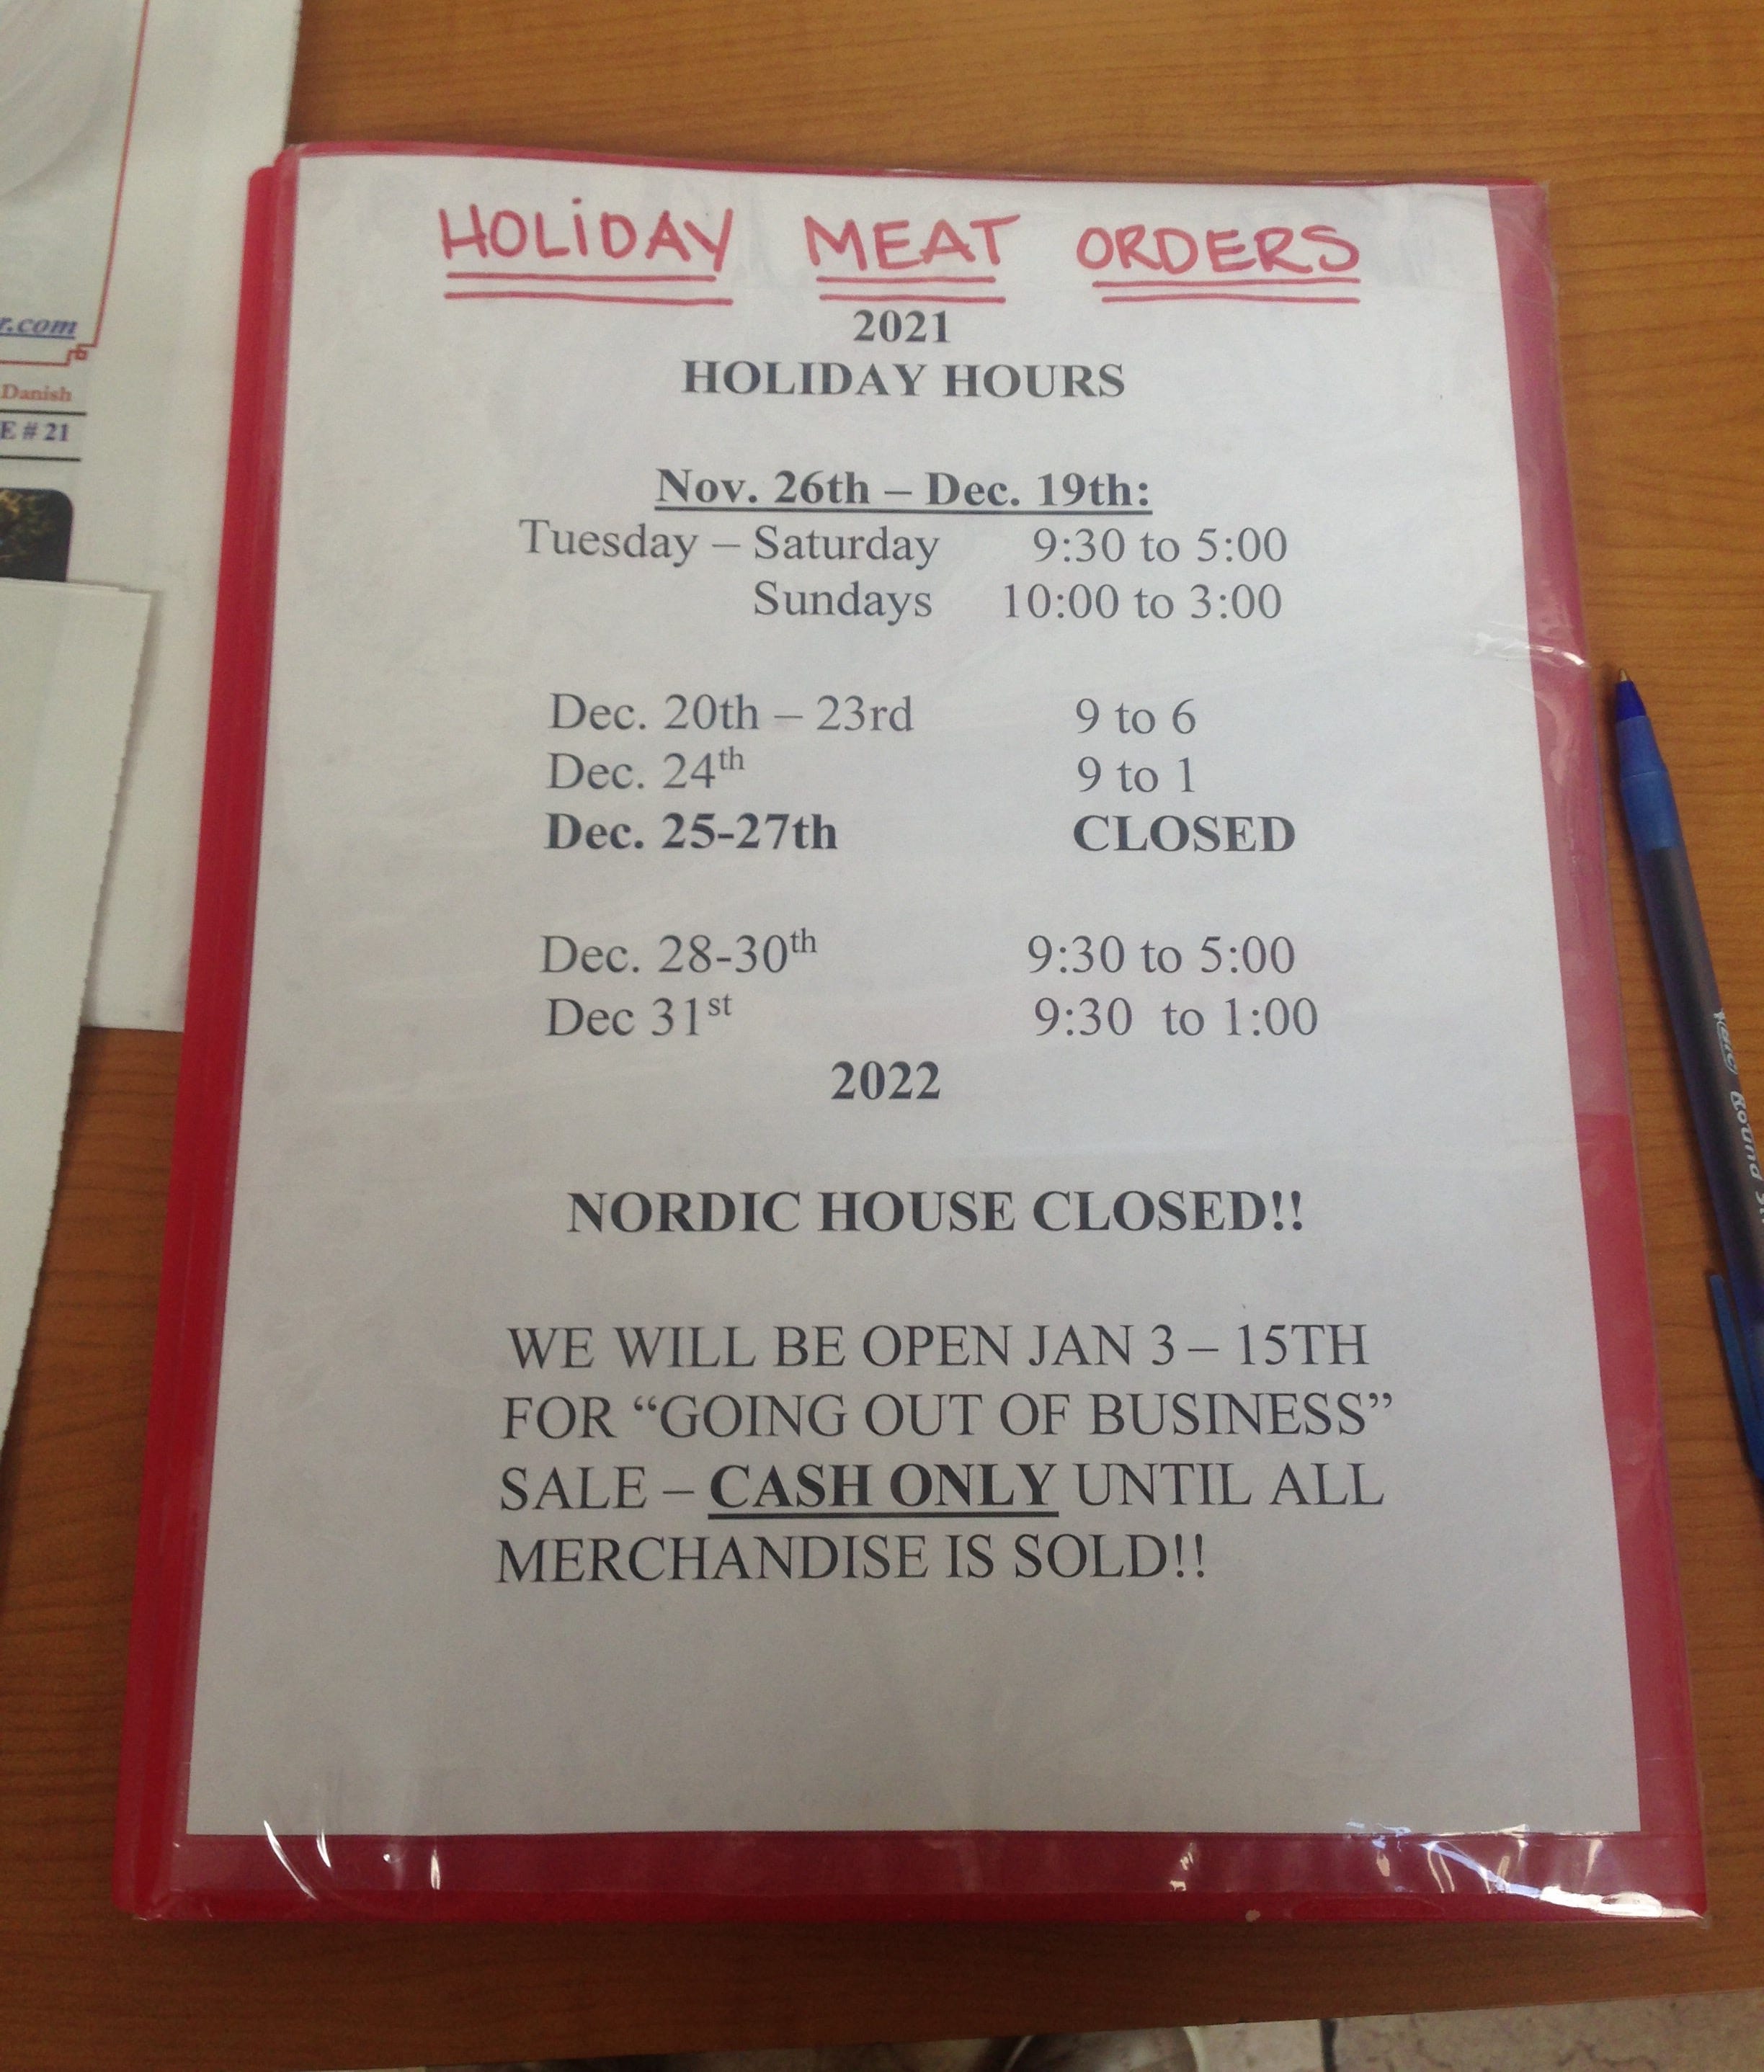 HOLIDAY MEAT ORDERS
2021
HOLIDAY HOURS
Nov. 26th – Dec. 19th:
Tuesday – Saturday 9:30 to 5:00
Sundays 10:00 to 3:00
Dec. 20th – 23rd 9 to 6
Dec. 24th 9 to 1
Dec. 25-27th CLOSED
Dec. 28-30th 9:30 to 5:00
Dec 31st 9:30 to 1:00
2022
NORDIC HOUSE CLOSED!!
WE WILL BE OPEN JAN 3 – 15TH
FOR “GOING OUT OF BUSINESS”
SALE – CASH ONLY UNTIL ALL
MERCHANDISE IS SOLD!!
r.com
Danish
E # 21
Round